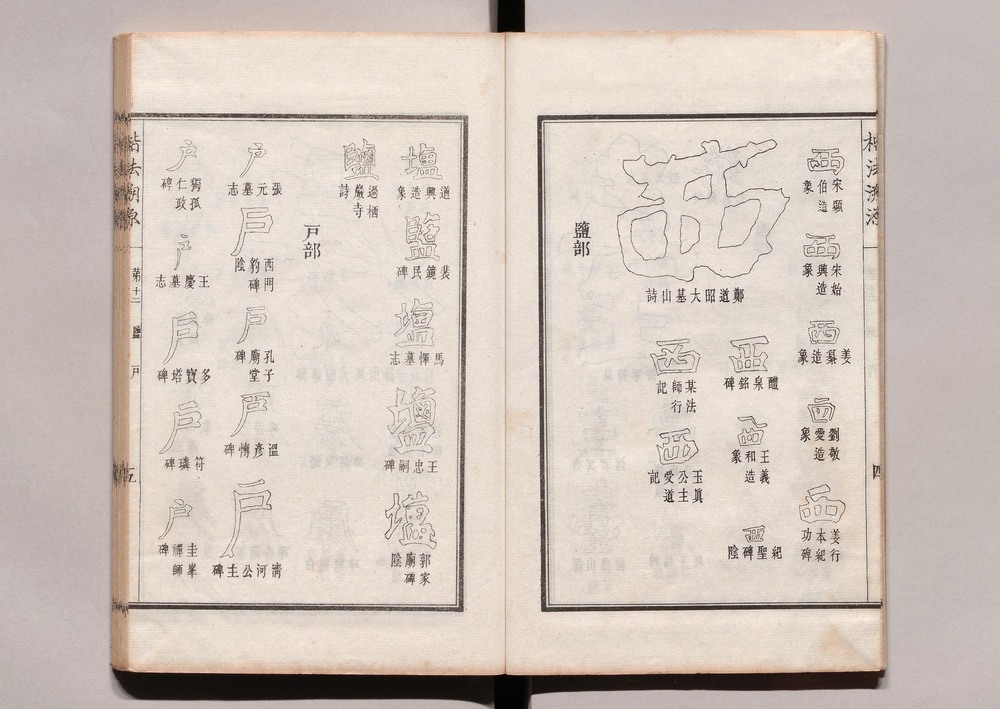 楷法溯源
四
西 宋顯伯造象
西 宋始興造象
西 姜纂造象
西 劉敬愛造象
西 姜行本紀功碑
西 鄭道昭大基山詩
西 醴泉銘碑
西 王義和造象
西 紀聖碑陰
西 某法師行記
西 玉眞公主受道記
鹽部
塩 道興造象
鹽 裴鏡民碑
塩 馬惲墓志
鹽 王忠嗣碑
鹽 郭家廟碑陰
鹽 過栖巖寺詩
戸部
戸 張元墓志
戸 西門豹碑陰
戸 孔子廟堂碑
戸 溫彥博碑
戸 淸河公主碑
戸 獨孤仁政碑
戸 王慶墓志
戸 多寶塔碑
戸 符璘碑
戸 圭峯禪師碑
楷法溯源
第十二 鹽 戸
五